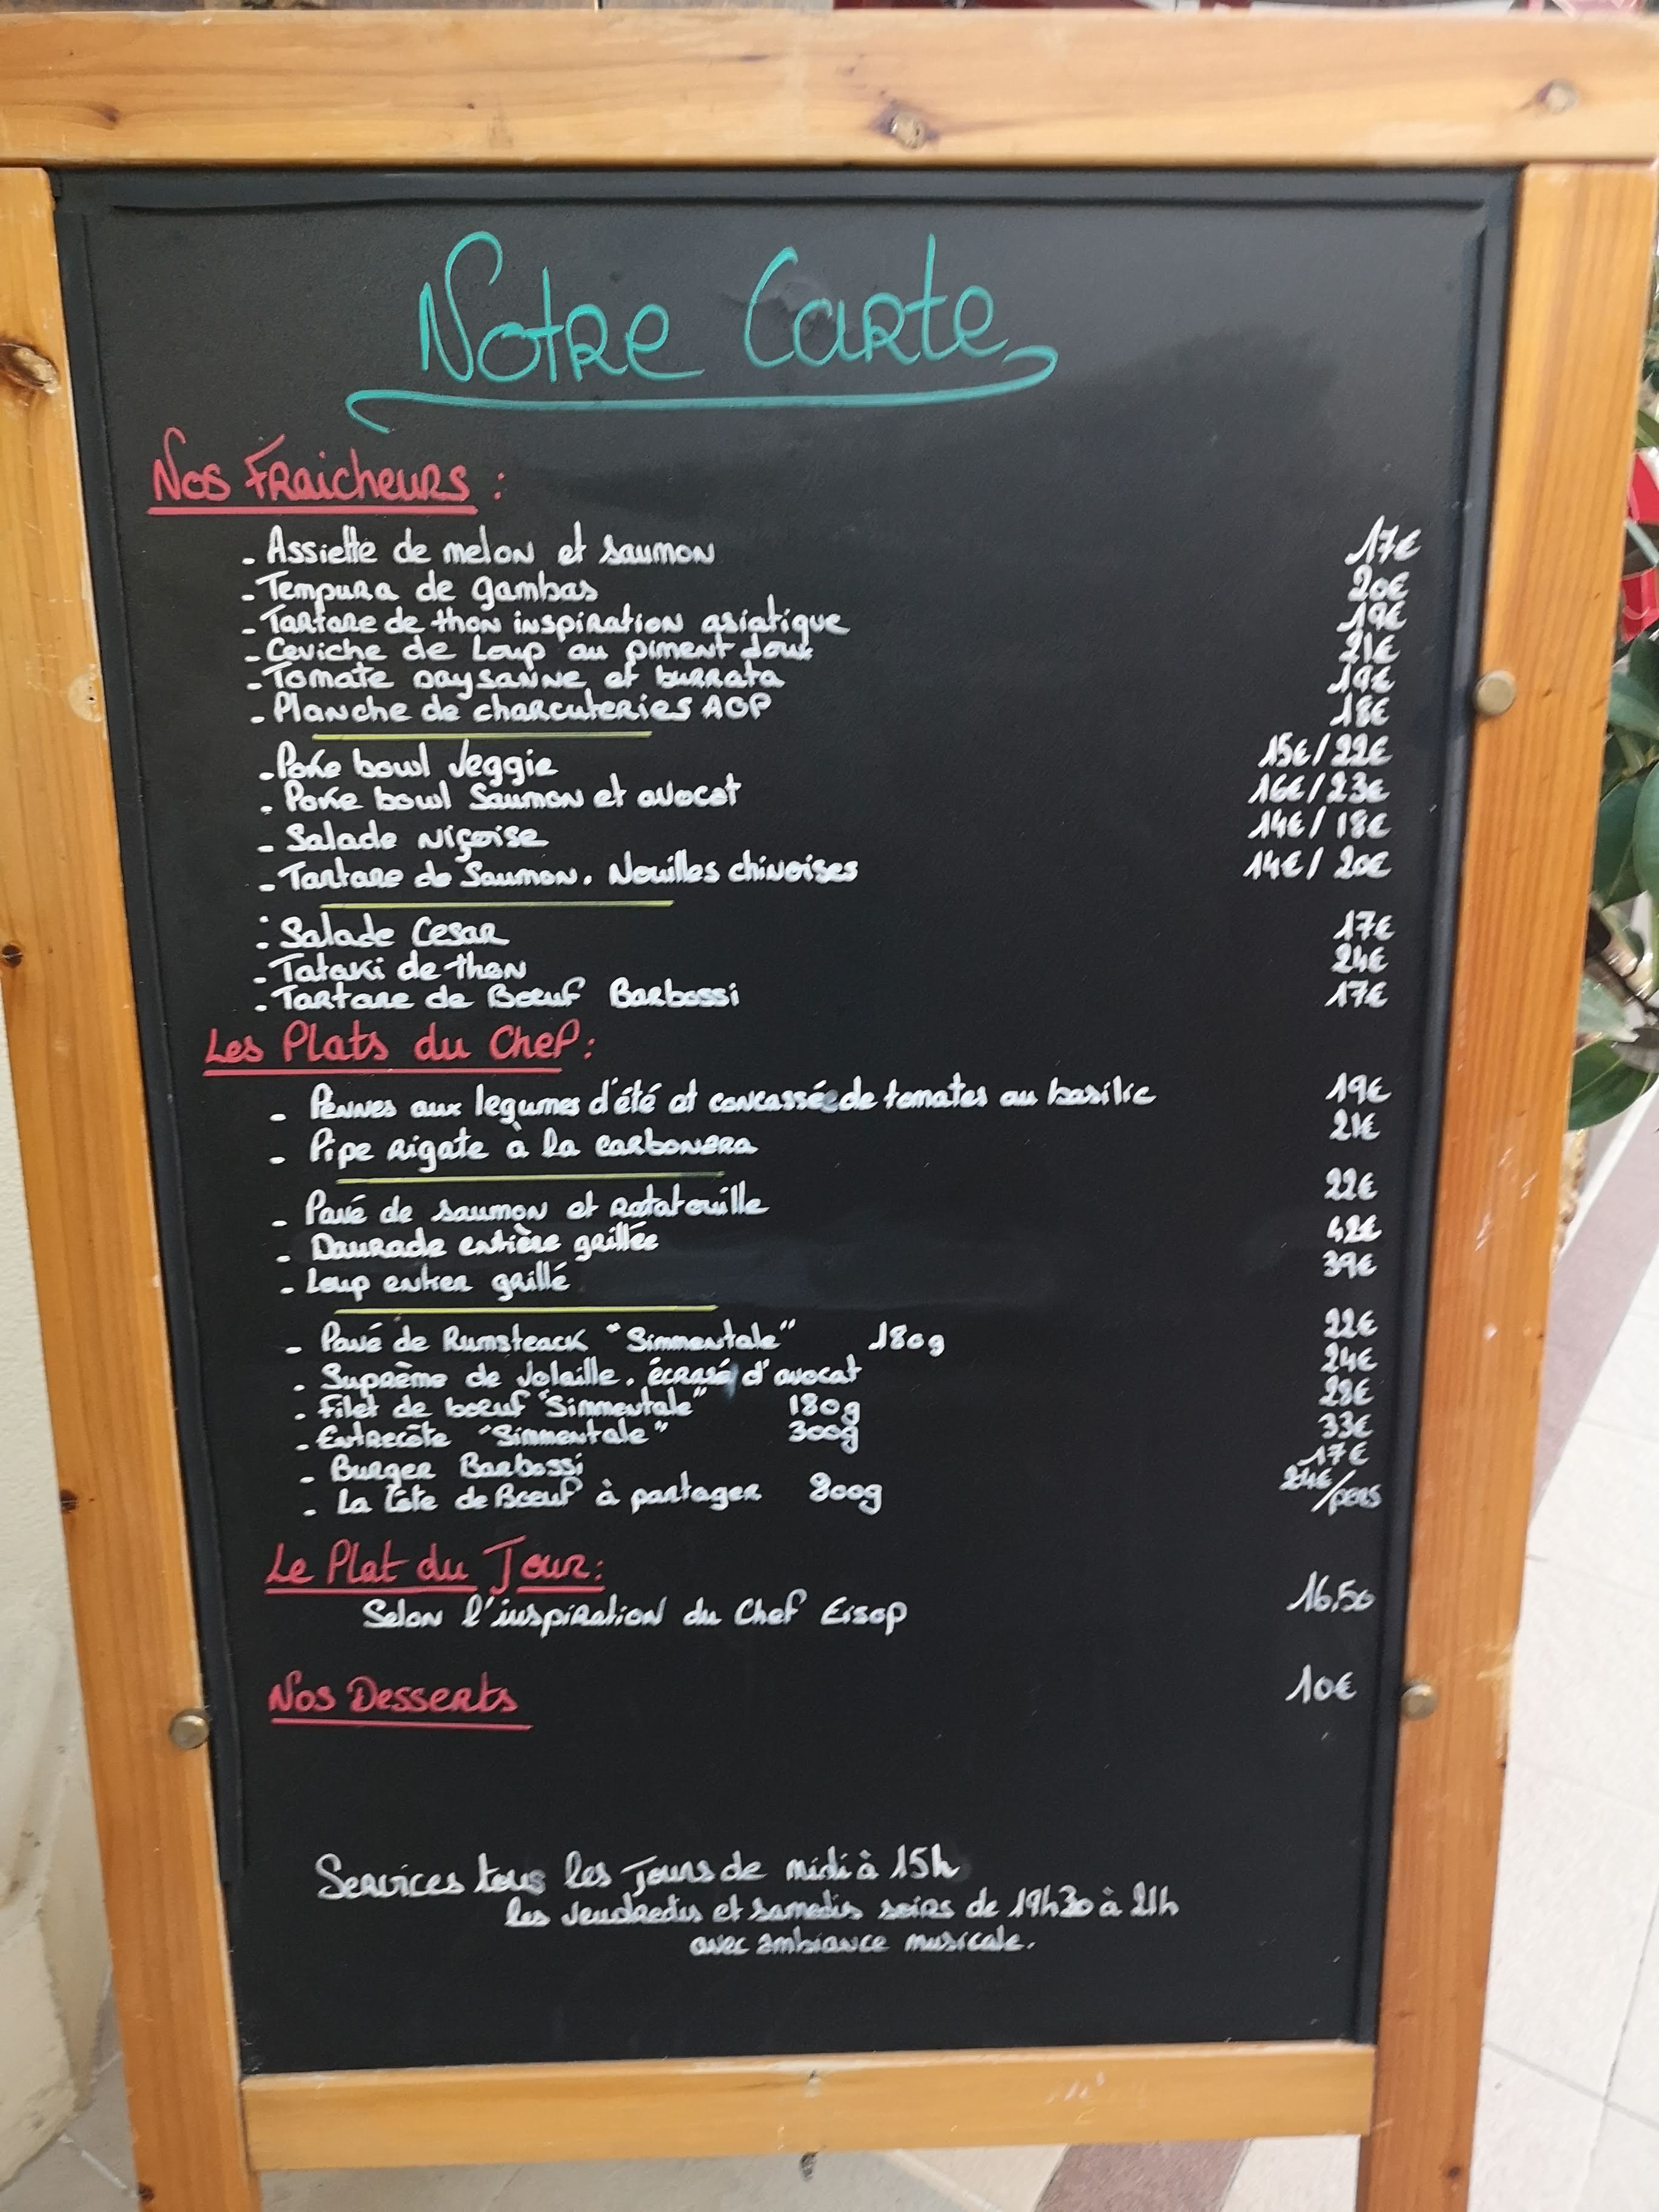 Notre Carte
Nos Fraicheurs :
- Assiette de melon et saumon 17€
- Tempura de gambas 20€
- Tartare de thon inspiration asiatique 19€
- Ceviche de Loup au piment doux 21€
- Tomate paysanne et burrata 19€
- Planche de charcuteries AOP 18€
- Poke bowl Veggie 15€/22€
- Poke bowl Saumon et avocat 16€/23€
- Salade niçoise 14€/18€
- Tartare de Saumon. Nouilles chinoises 14€/20€
- Salade Cesar 17€
- Tataki de thon 24€
- Tartare de Bœuf Barbossi 17€
Les Plats du Chef :
- Pennes aux legumes d'été et concassée de tomates au basilic 19€
- Pipe rigate à la carbonara 21€
- Pavé de saumon et ratatouille 22€
- Daurade entière grillée 42€
- Loup entier grillé 39€
- Pavé de Rumsteack "Simmentale" 180g 22€
- Suprème de Volaille. écrasé d'avocat 24€
- Filet de bœuf "Simmentale" 180g 28€
- Entrecôte "Simmentale" 300g 33€
- Burger Barbossi 17€
- La Côte de Bœuf à partager 800g 24€/pers
Le Plat du Jour :
Selon l'inspiration du Chef Eisop 16,50
Nos Desserts 10€
Services tous les Jours de midi à 15h
les Vendredis et samedis soirs de 19h30 à 21h
avec ambiance musicale.